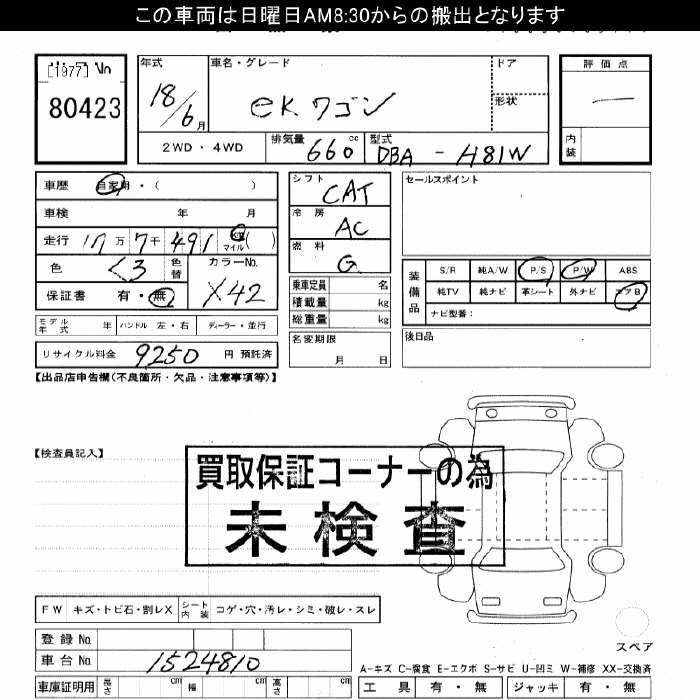 この車両は日曜日AM8:30からの搬出となります
[1977] No
80423
年式 車名・グレード ドア 評価点
18/6月 eKワゴン 形状 —
2WD・4WD 排気量 660cc 型式 DBA-H81W 内装
車歴 自家用・( ) シフト CAT セールスポイント
車検 年 月 冷房 AC
走行 17万7千491 km マイル( ) 燃料 G
色 くろ 色替 カラーNo. X42 乗車定員 名 装備品 S/R 純A/W P/S P/W ABS
保証書 有・無 積載量 kg 純TV 純ナビ 革シート 外ナビ エアB
総重量 kg ナビ型番:
モデル年式 年 ハンドル 左・右 ディーラー・並行 名変期限 月 日 後日品
リサイクル料金 9250 円 預託済
【出品店申告欄(不良箇所・欠品・注意事項等)】
【検査員記入】
買取保証コーナーの為
未検査
FW キズ・トビ石・割レX シート内装 コゲ・穴・汚レ・シミ・破レ・スレ
登録No.
スペア
車台No. 1524810
A-キズ C-腐食 E-エクボ S-サビ U-凹ミ W-補修 XX-交換済
車庫証明用 長さ cm 幅 cm 高さ cm 工具 有・無 ジャッキ 有・無